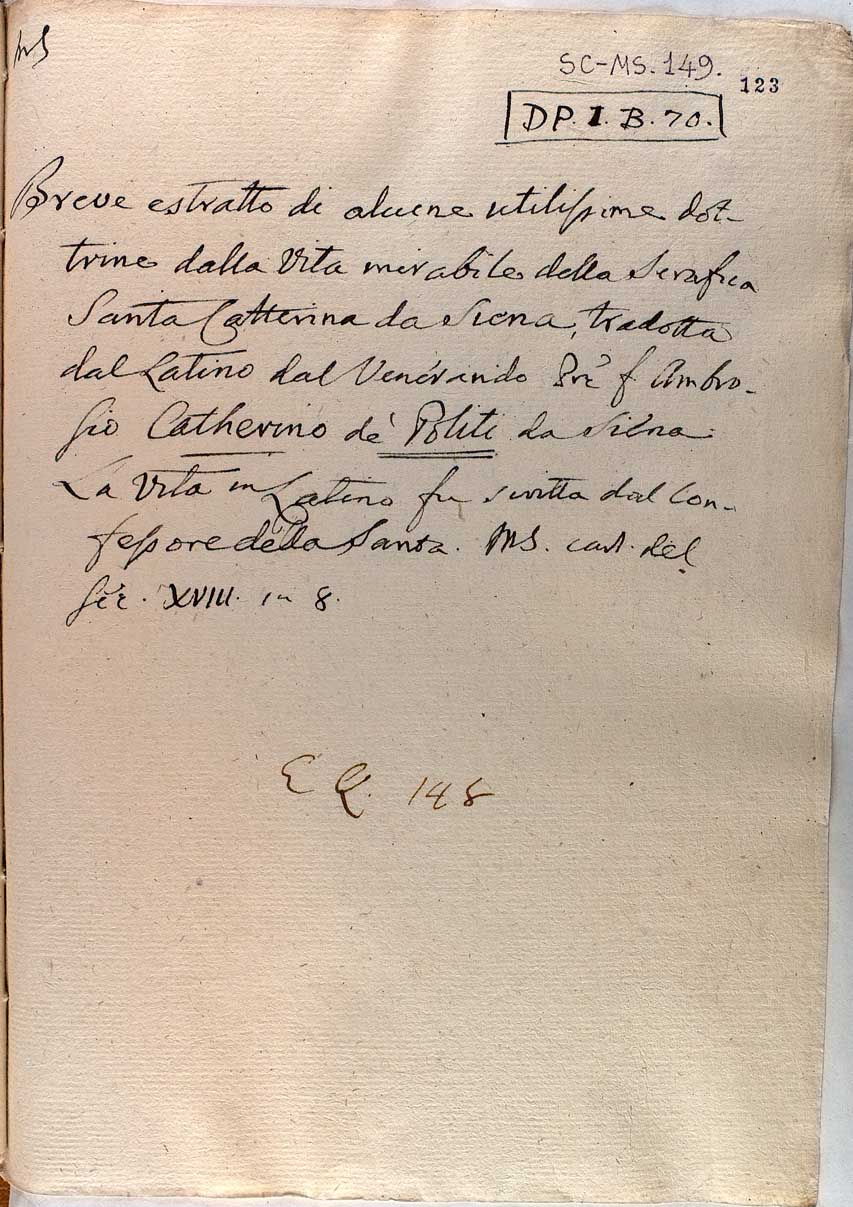 MS
SC-MS. 149.
123
DP. I. B. 70.
Breve estratto di alcune utilissime dot-
trine dalla Vita mirabile della Serafica
Santa Catterina da Siena, tradotta
dal Latino dal Venerando Pre f. Ambro-
sio Catherino de' Politi da Siena.
La Vita in Latino fu scritta dal Con-
fessore della Santa. MS. cart. del
sec. XVIII. in 8.
E Q. 148